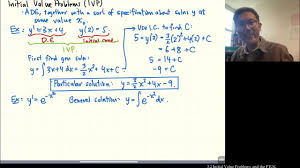 Initial Value Problems (IVP)
· A DE, together with a sort of specification about solns y at
some value x₀.
Ex: y' = 3x+4, y(2) = 5
D.E initial cond.
IVP.
First find gen soln:
y = ∫3x+4 dx = 3/2 x² + 4x + C
Use I.C. to find C:
5 = y(2) = 3/2 (2)² + 4(2) + C
= 6 + 8 + C
5 = 14 + C
-9 = C
Particular solution: y = 3/2 x² + 4x - 9.
Ex: y' = e^(-x²) General solution: y = ∫e^(-x²) dx.
3.2 Initial Value Problems and the